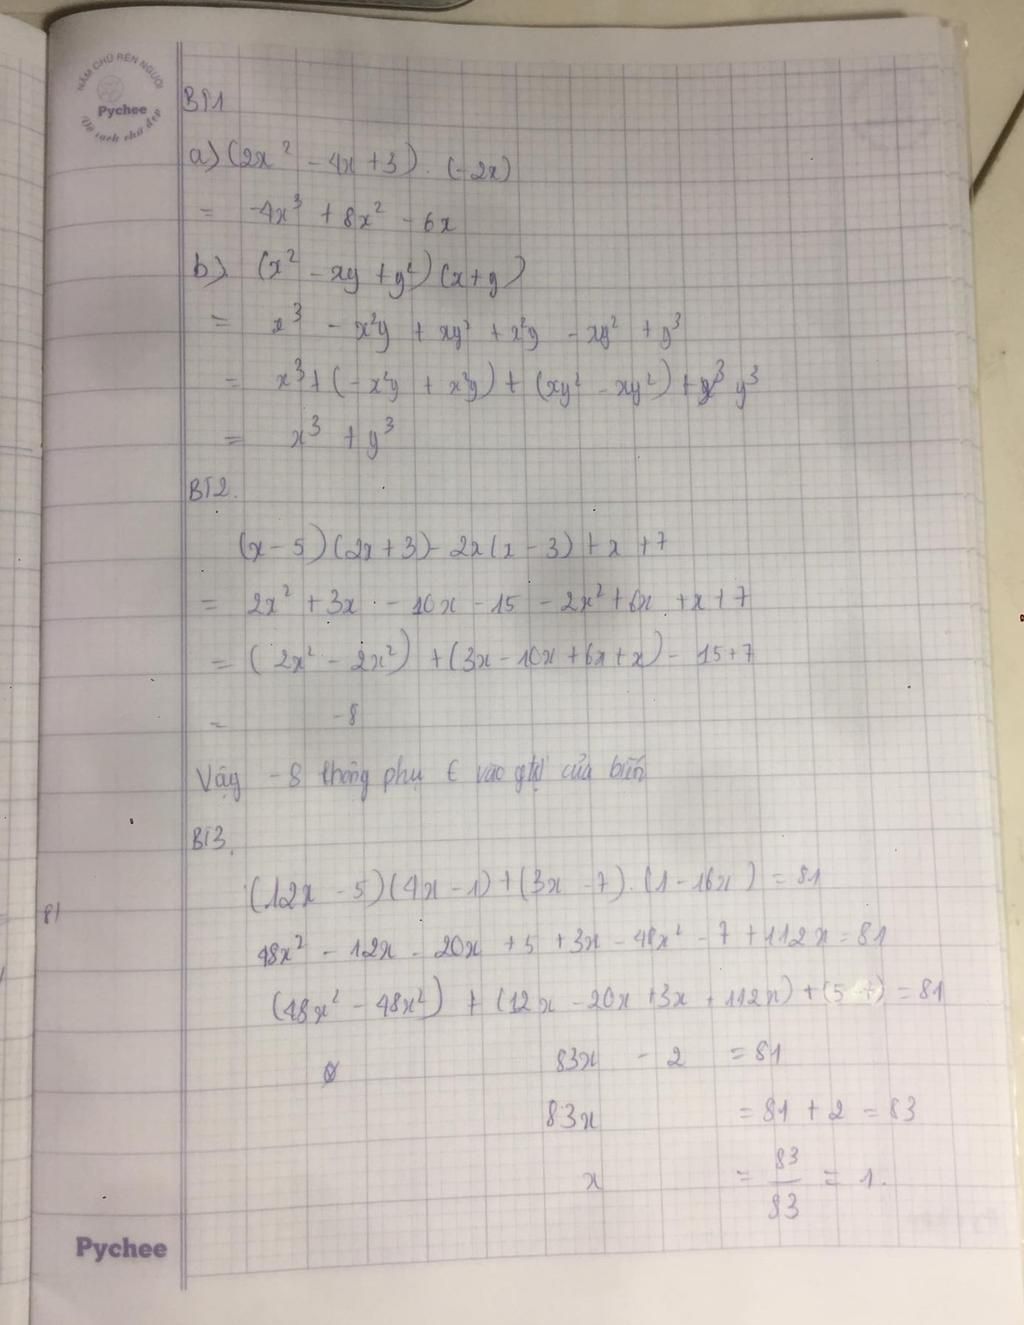 NẮM CHỮ RÈN NGƯỜI
Pychee
Vở sạch chữ đẹp
BT1
a) (2x² - 4x + 3) . (-2x)
= -4x³ + 8x² - 6x
b) (x² - xy + y²) (x + y)
= x³ - x²y + xy² + x²y - xy² + y³
= x³ + (-x²y + x²y) + (xy² - xy²) + y³
= x³ + y³
BT2.
(x - 5) (2x + 3) - 2x (x - 3) + x + 7
= 2x² + 3x - 10x - 15 - 2x² + 6x + x + 7
= (2x² - 2x²) + (3x - 10x + 6x + x) - 15 + 7
= -8
Vậy -8 không phụ € vào gtrị của biến
BT3.
(12x - 5) (4x - 1) + (3x - 7) . (1 - 16x) = 81
81
48x² - 12x - 20x + 5 + 3x - 48x² - 7 + 112x = 81
(48x² - 48x²) + (12x - 20x + 3x + 112x) + (5 - 7) = 81
0
83x - 2 = 81
83x = 81 + 2 = 83
x = 83/83 = 1.
Pychee